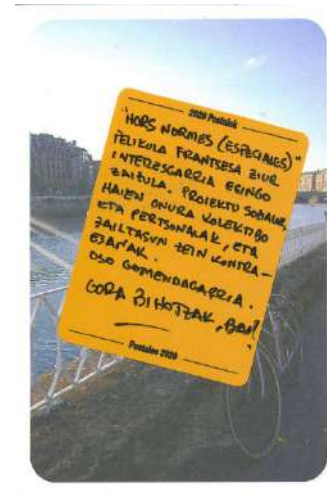 2020 Postalak
"HORS NORMES (ESPECIALES)"
PELIKULA FRANTSESA ZIUR
INTERESGARRIA EGINGO
ZAIZULA. PROIEKTU SOZIALAK,
HAIEN ONURA KOLEKTIBO
ETA PERTSONALAK, ETA
ZAILTASUN ZEIN KONTRA-
ESANAK.
OSO GOMENDAGARRIA.
GORA BIHOTZAK,
Postales 2020